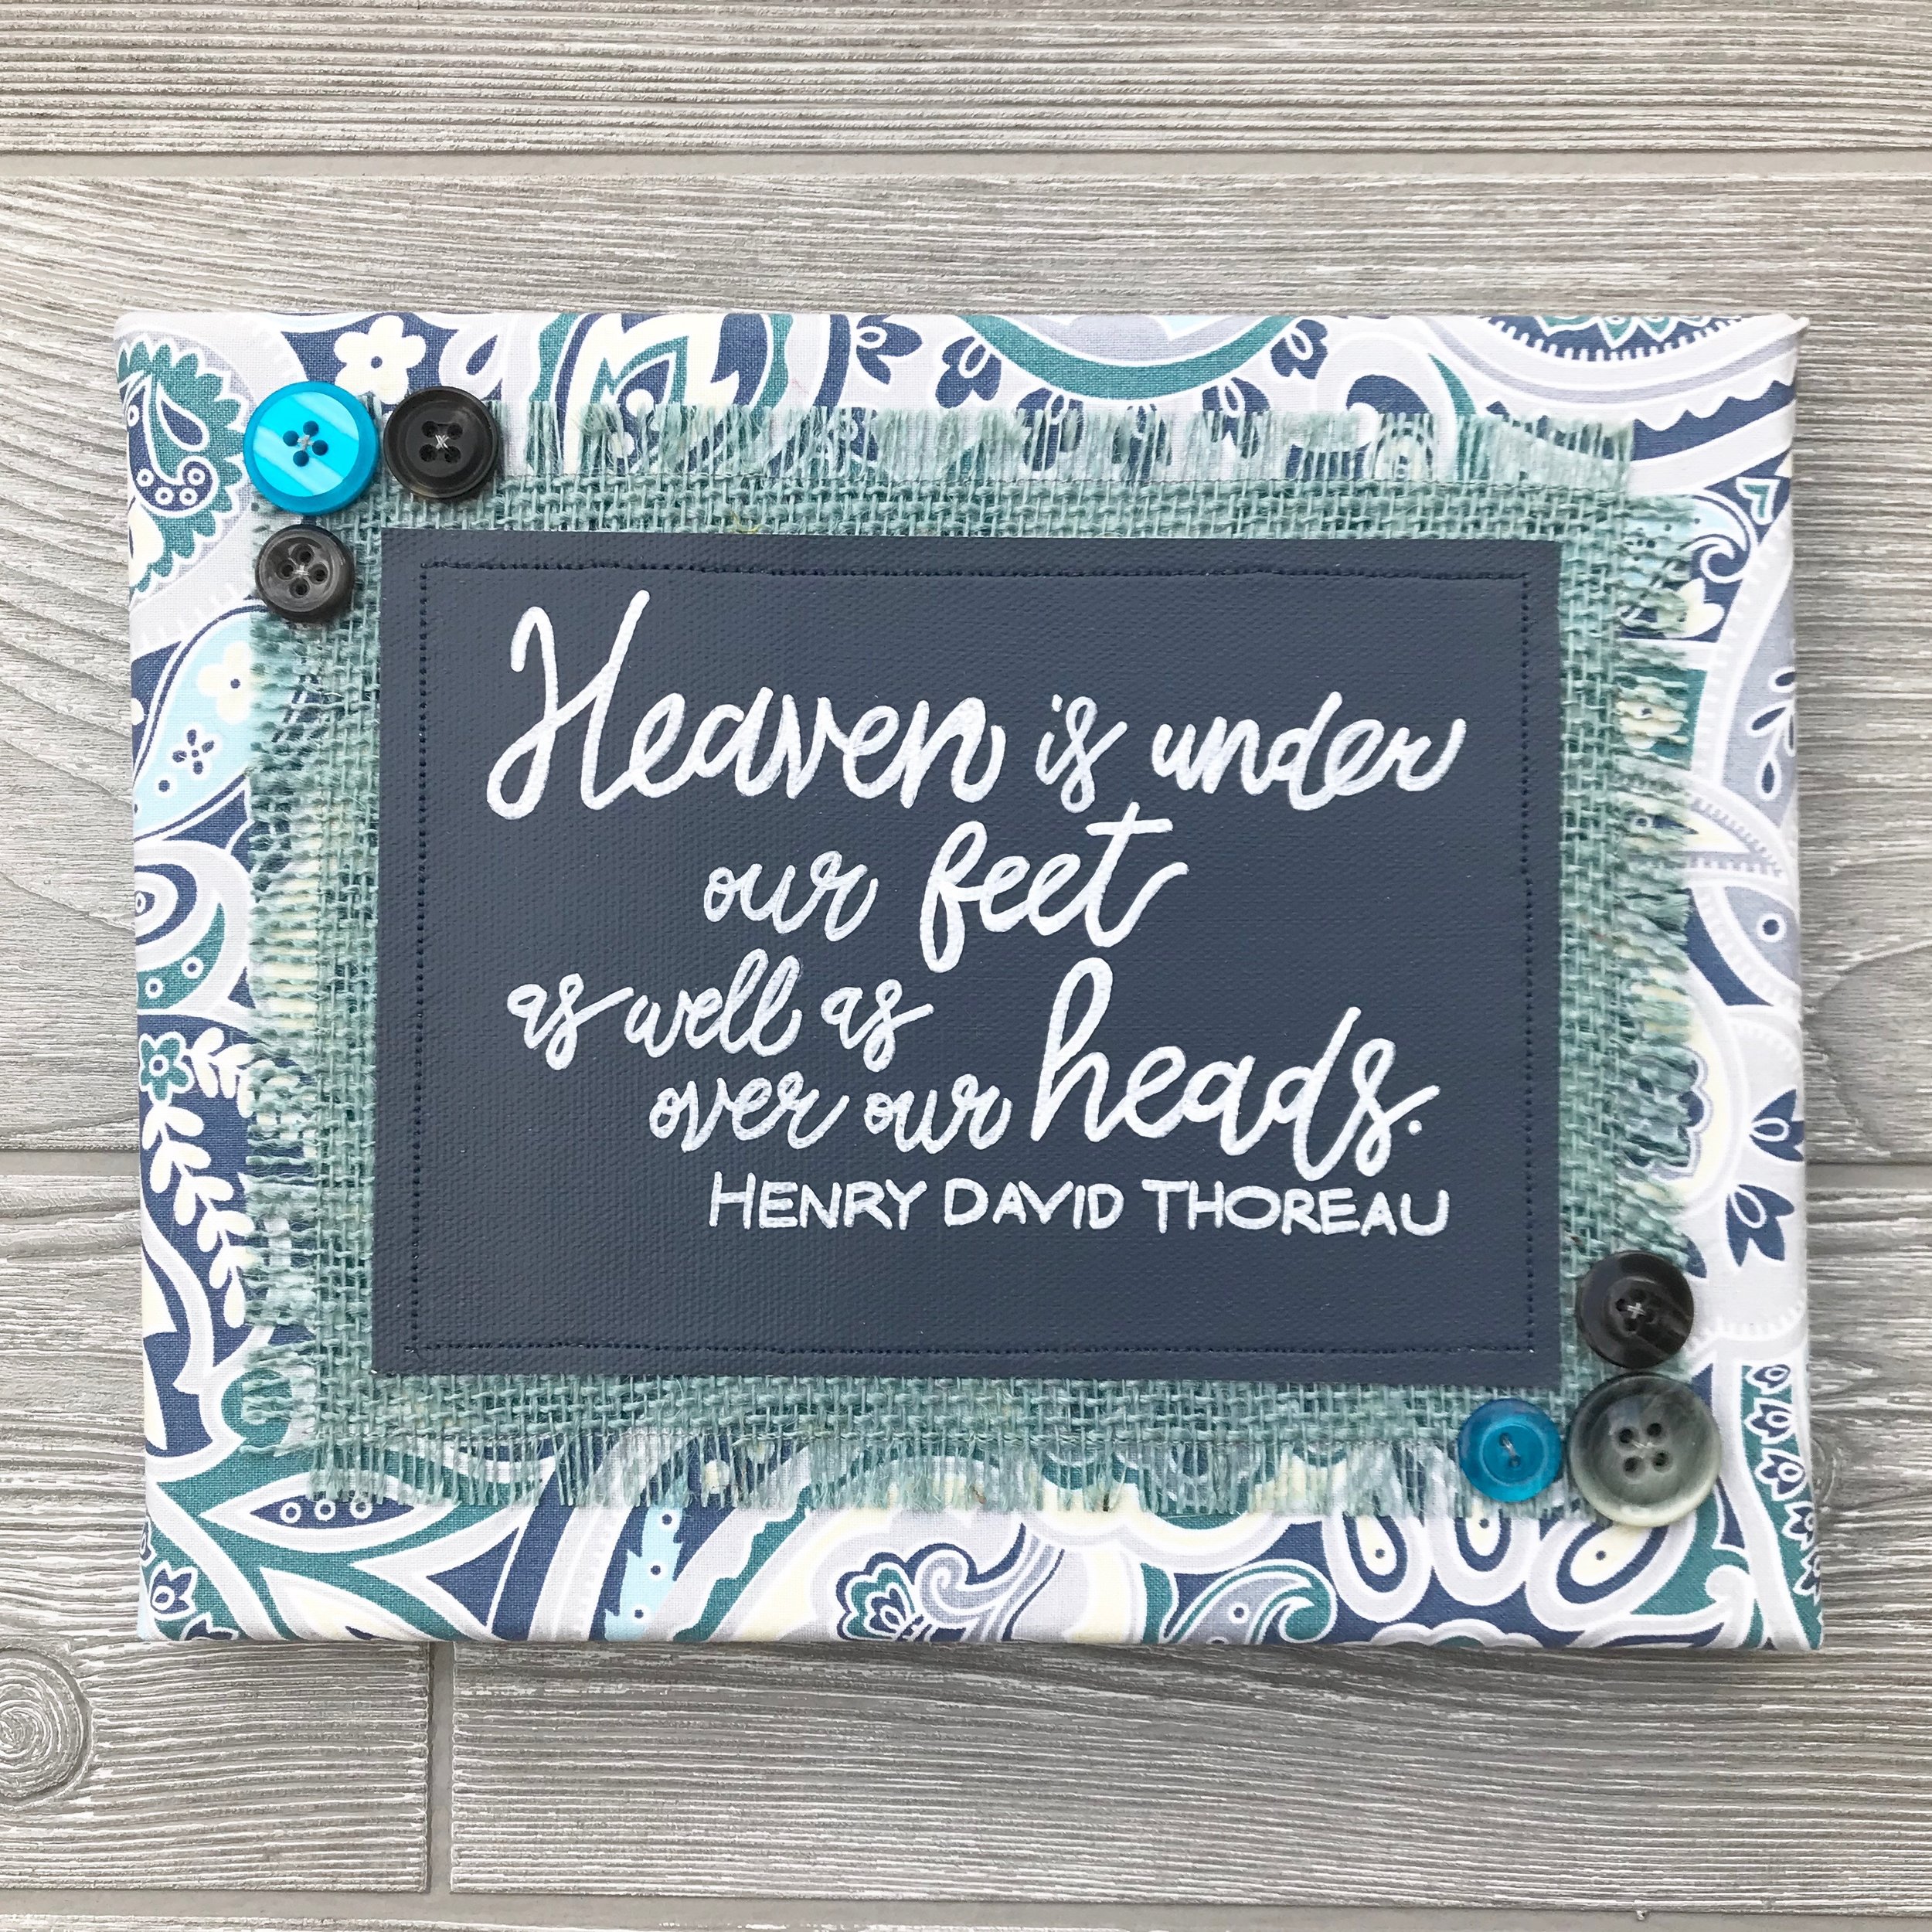 Heaven is under
our feet
as well as
over our heads.
HENRY DAVID THOREAU